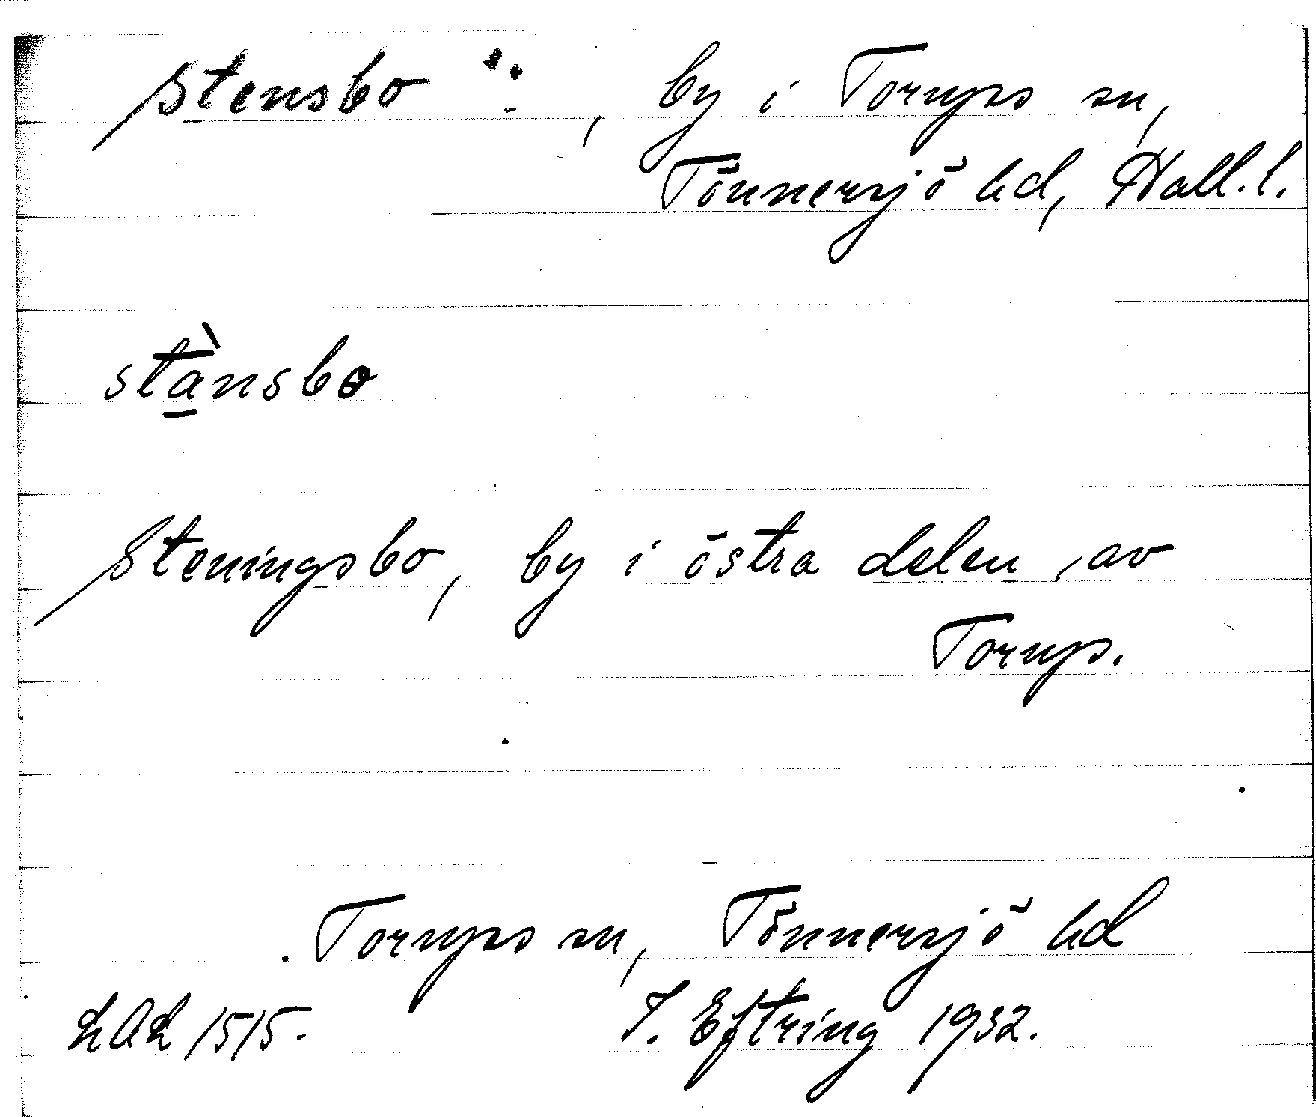 Stensbo ∵, by i Torups sn,
Tönnersjö hd, Hall.l.
stànsbo
Steningsbo, by i östra delen av
Torup.
Torups sn, Tönnersjö hd
LAL 1515. I. Eftring 1932.